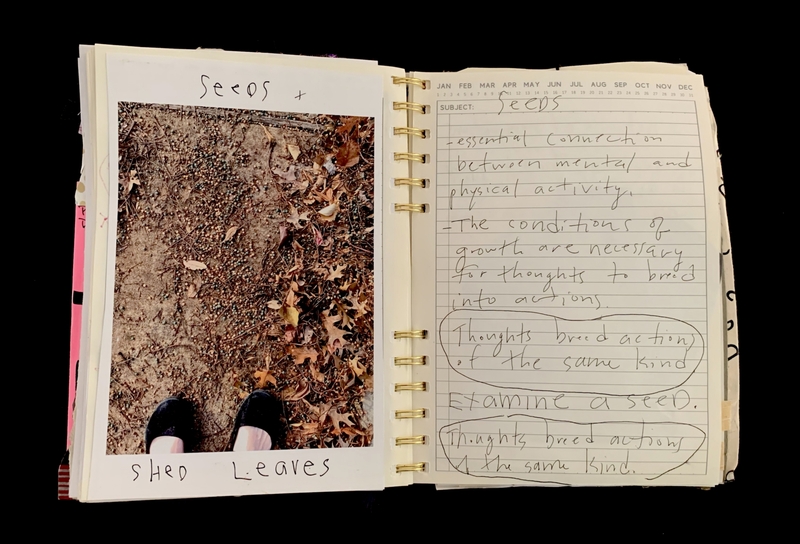 SeeDS +
SHED Leaves
JAN FEB MAR APR MAY JUN JUL AUG SEP OCT NOV DEC
SUBJECT: SeeDS
-essential connection
between mental and
physical activity.
-The conditions of
growth are necessary
for thoughts to breed
into actions.
Thoughts breed actions
of the same kind
Examine a seed.
Thoughts breed actions
of the same kind.